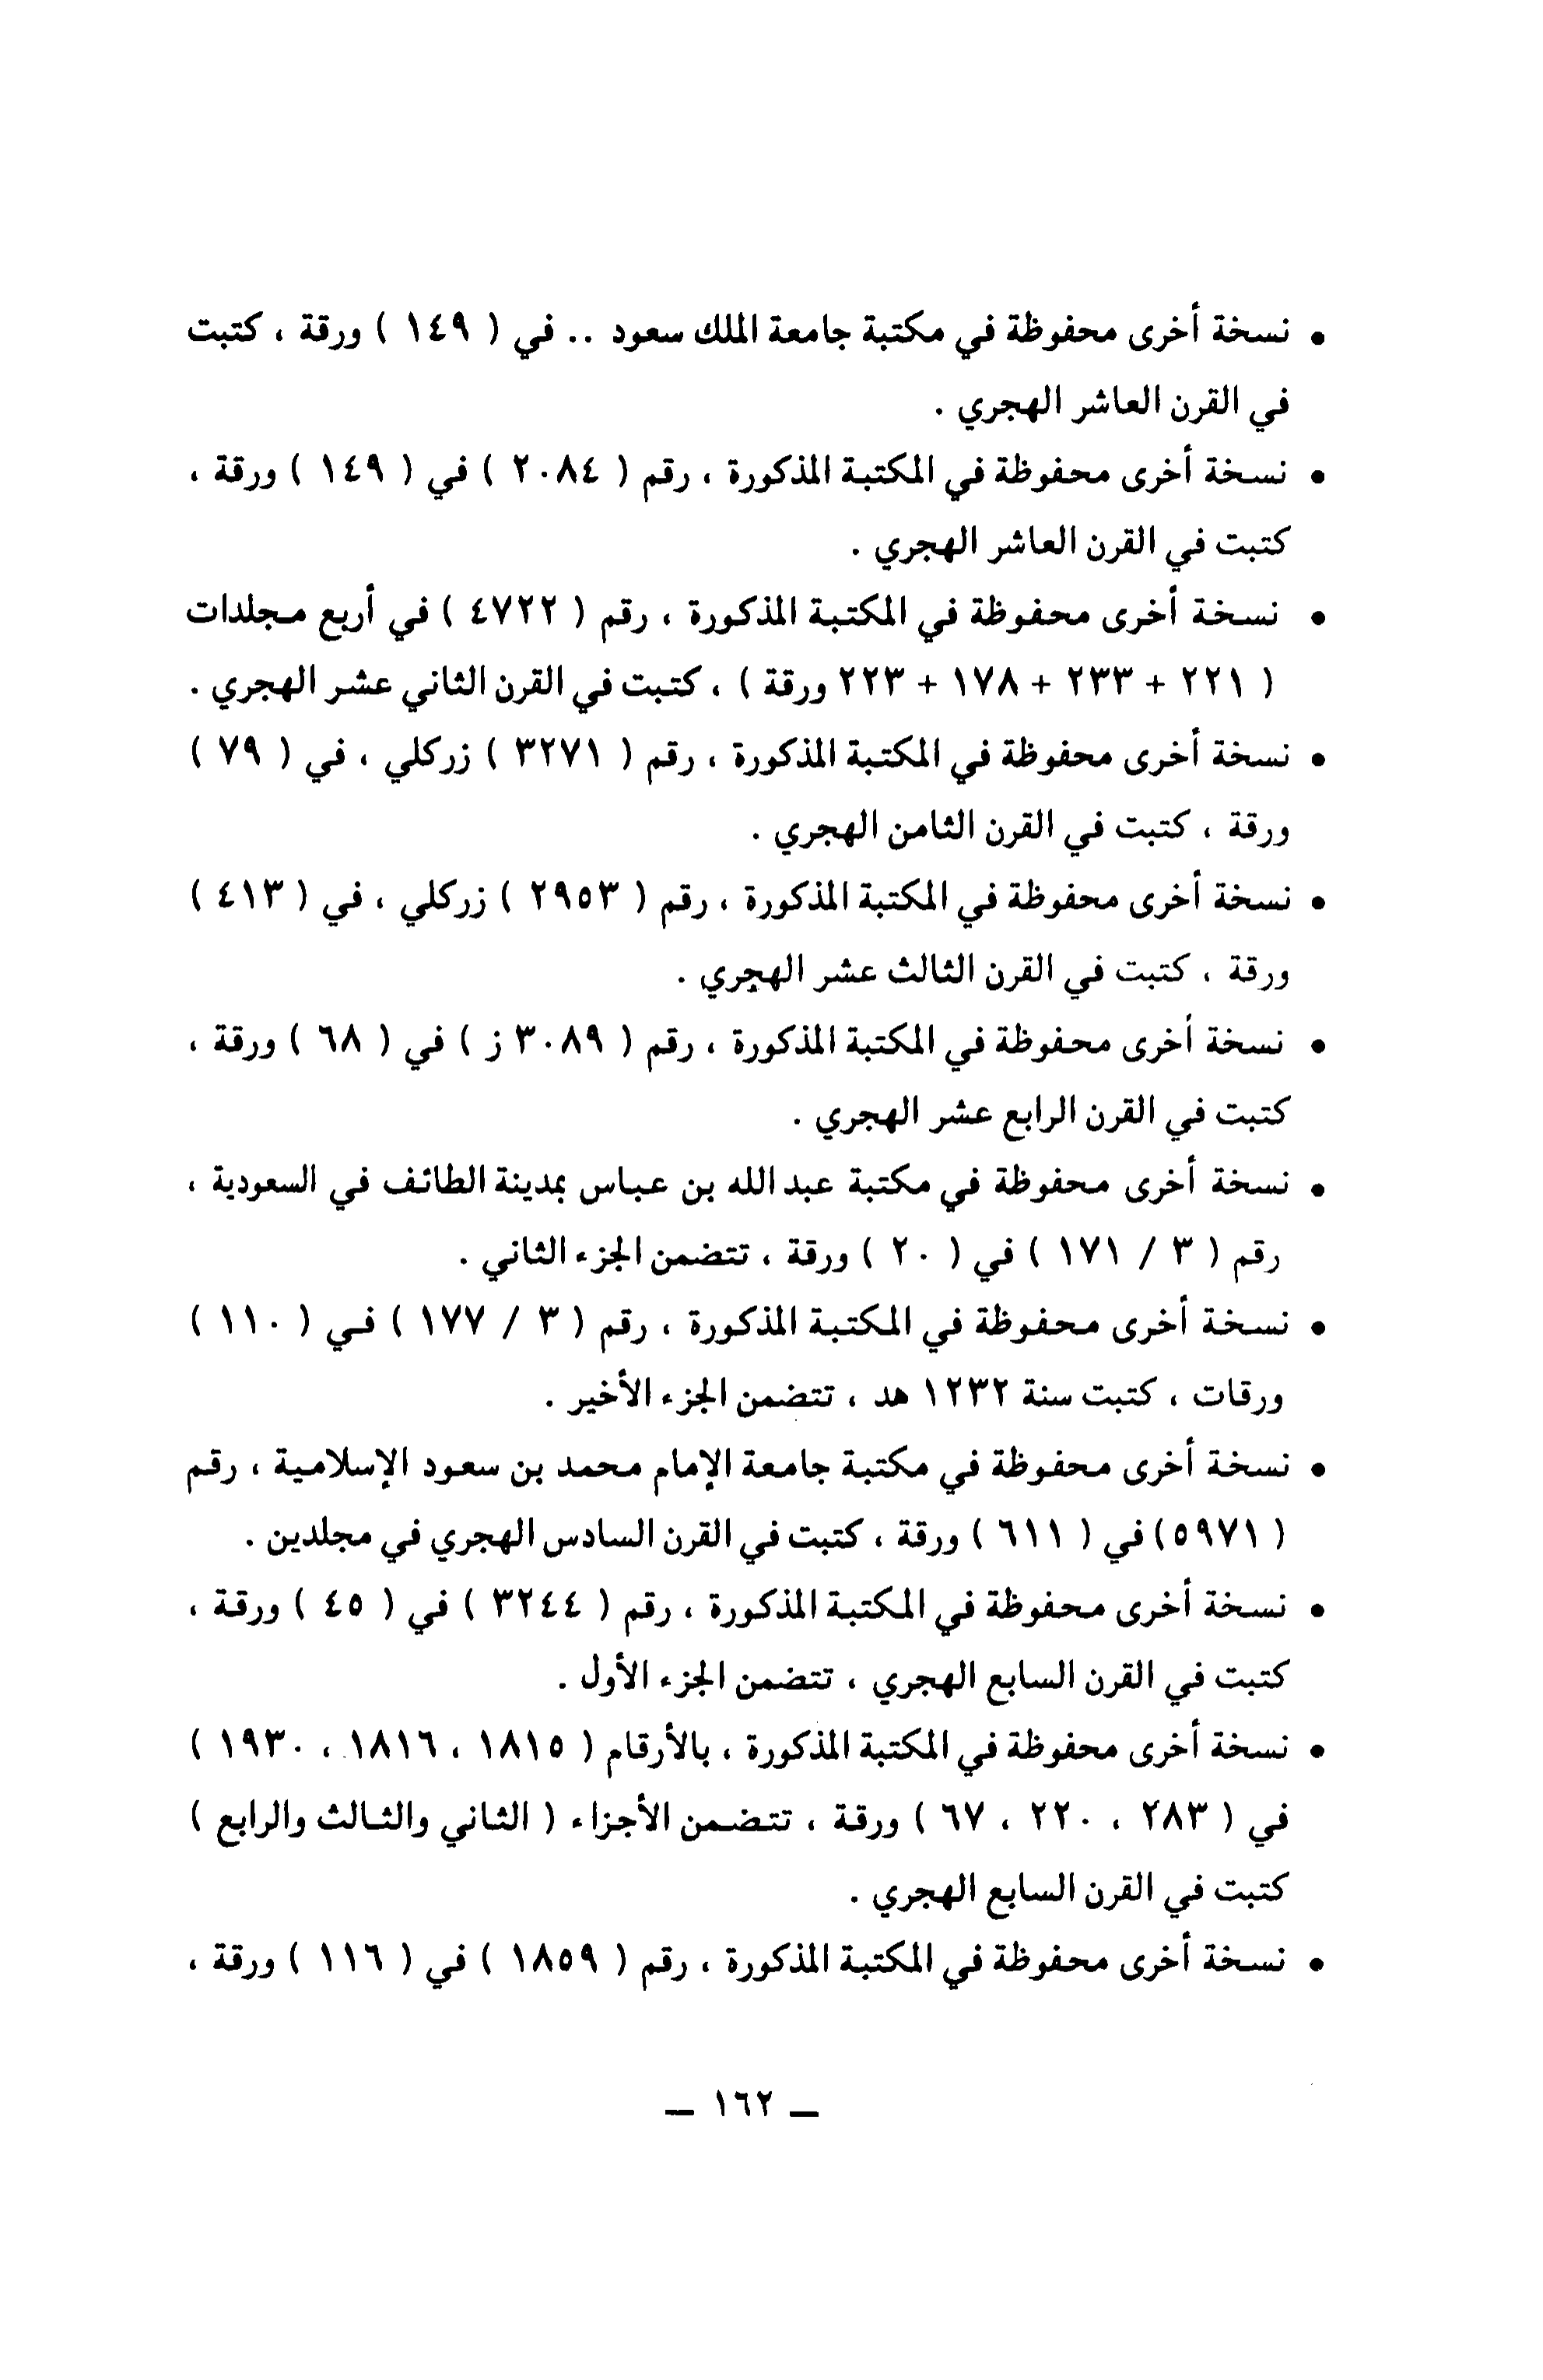 • نسخة أخرى محفوظة في مكتبة جامعة الملك سعود .. في ( ١٤٩ ) ورقة ، كتبت
في القرن العاشر الهجري .
• نسخة أخرى محفوظة في المكتبة المذكورة ، رقم ( ٢٠٨٤ ) في ( ١٤٩ ) ورقة ،
كتبت في القرن العاشر الهجري .
• نسخة أخرى محفوظة في المكتبة المذكورة ، رقم ( ٤٧٢٢ ) في أربع مجلدات
( ٢٢١ + ٢٣٣ + ١٧٨ + ٢٢٣ ورقة ) ، كتبت في القرن الثاني عشر الهجري .
• نسخة أخرى محفوظة في المكتبة المذكورة ، رقم ( ٣٢٧١ ) زركلي ، في ( ٧٩ )
ورقة ، كتبت في القرن الثامن الهجري .
• نسخة أخرى محفوظة في المكتبة المذكورة ، رقم ( ٢٩٥٣ ) زركلي ، في ( ٤١٣ )
ورقة ، كتبت في القرن الثالث عشر الهجري .
• نسخة أخرى محفوظة في المكتبة المذكورة ، رقم ( ٣٠٨٩ ز ) في ( ٦٨ ) ورقة ،
كتبت في القرن الرابع عشر الهجري .
• نسخة أخرى محفوظة في مكتبة عبد الله بن عباس بمدينة الطائف في السعودية ،
رقم ( ٣ / ١٧١ ) في ( ٢٠ ) ورقة ، تتضمن الجزء الثاني .
• نسخة أخرى محفوظة في المكتبة المذكورة ، رقم ( ٣ / ١٧٧ ) في ( ١١٠ )
ورقات ، كتبت سنة ١٢٣٢ هد ، تتضمن الجزء الأخير .
• نسخة أخرى محفوظة في مكتبة جامعة الإمام محمد بن سعود الإسلامية ، رقم
( ٥٩٧١) في ( ٦١١ ) ورقة ، كتبت في القرن السادس الهجري في مجلدين .
• نسخة أخرى محفوظة في المكتبة المذكورة ، رقم ( ٣٢٤٤ ) في ( ٤٥ ) ورقة ،
كتبت في القرن السابع الهجري ، تتضمن الجزء الأول .
• نسخة أخرى محفوظة في المكتبة المذكورة ، بالأرقام ( ١٨١٥ ، ١٨١٦ ، ١٩٣٠ )
في ( ٢٨٣ ، ٢٢٠ ، ٦٧ ) ورقة ، تتضمن الأجزاء ( الثاني والثالث والرابع )
كتبت في القرن السابع الهجري .
• نسخة أخرى محفوظة في المكتبة المذكورة ، رقم ( ١٨٥٩ ) في ( ١١٦ ) ورقة ،
ــ ١٦٢ ــ